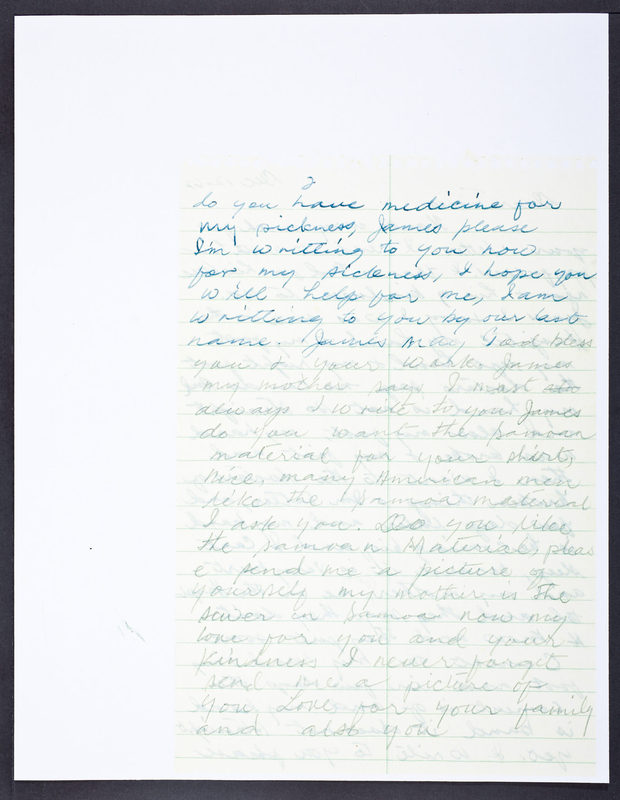 2
do you have medicine for
my sickness, James please
I'm writting to you now
for my sickness, I hope you
will help for me, I am
writting to you by our last
name. James May God bless
you & your work. James
my mother says I must
always I write to you. James
do you want the samoan
material for your shirts,
Nice, many American men
like the samoa material
I ask you. Do you like
the samoan Material, pleas
e send me a picture of
yourself my mother is the
sewer in samoa now my
love for you and your
kindness I never forget
send me a picture of
you Love for your family
and also you